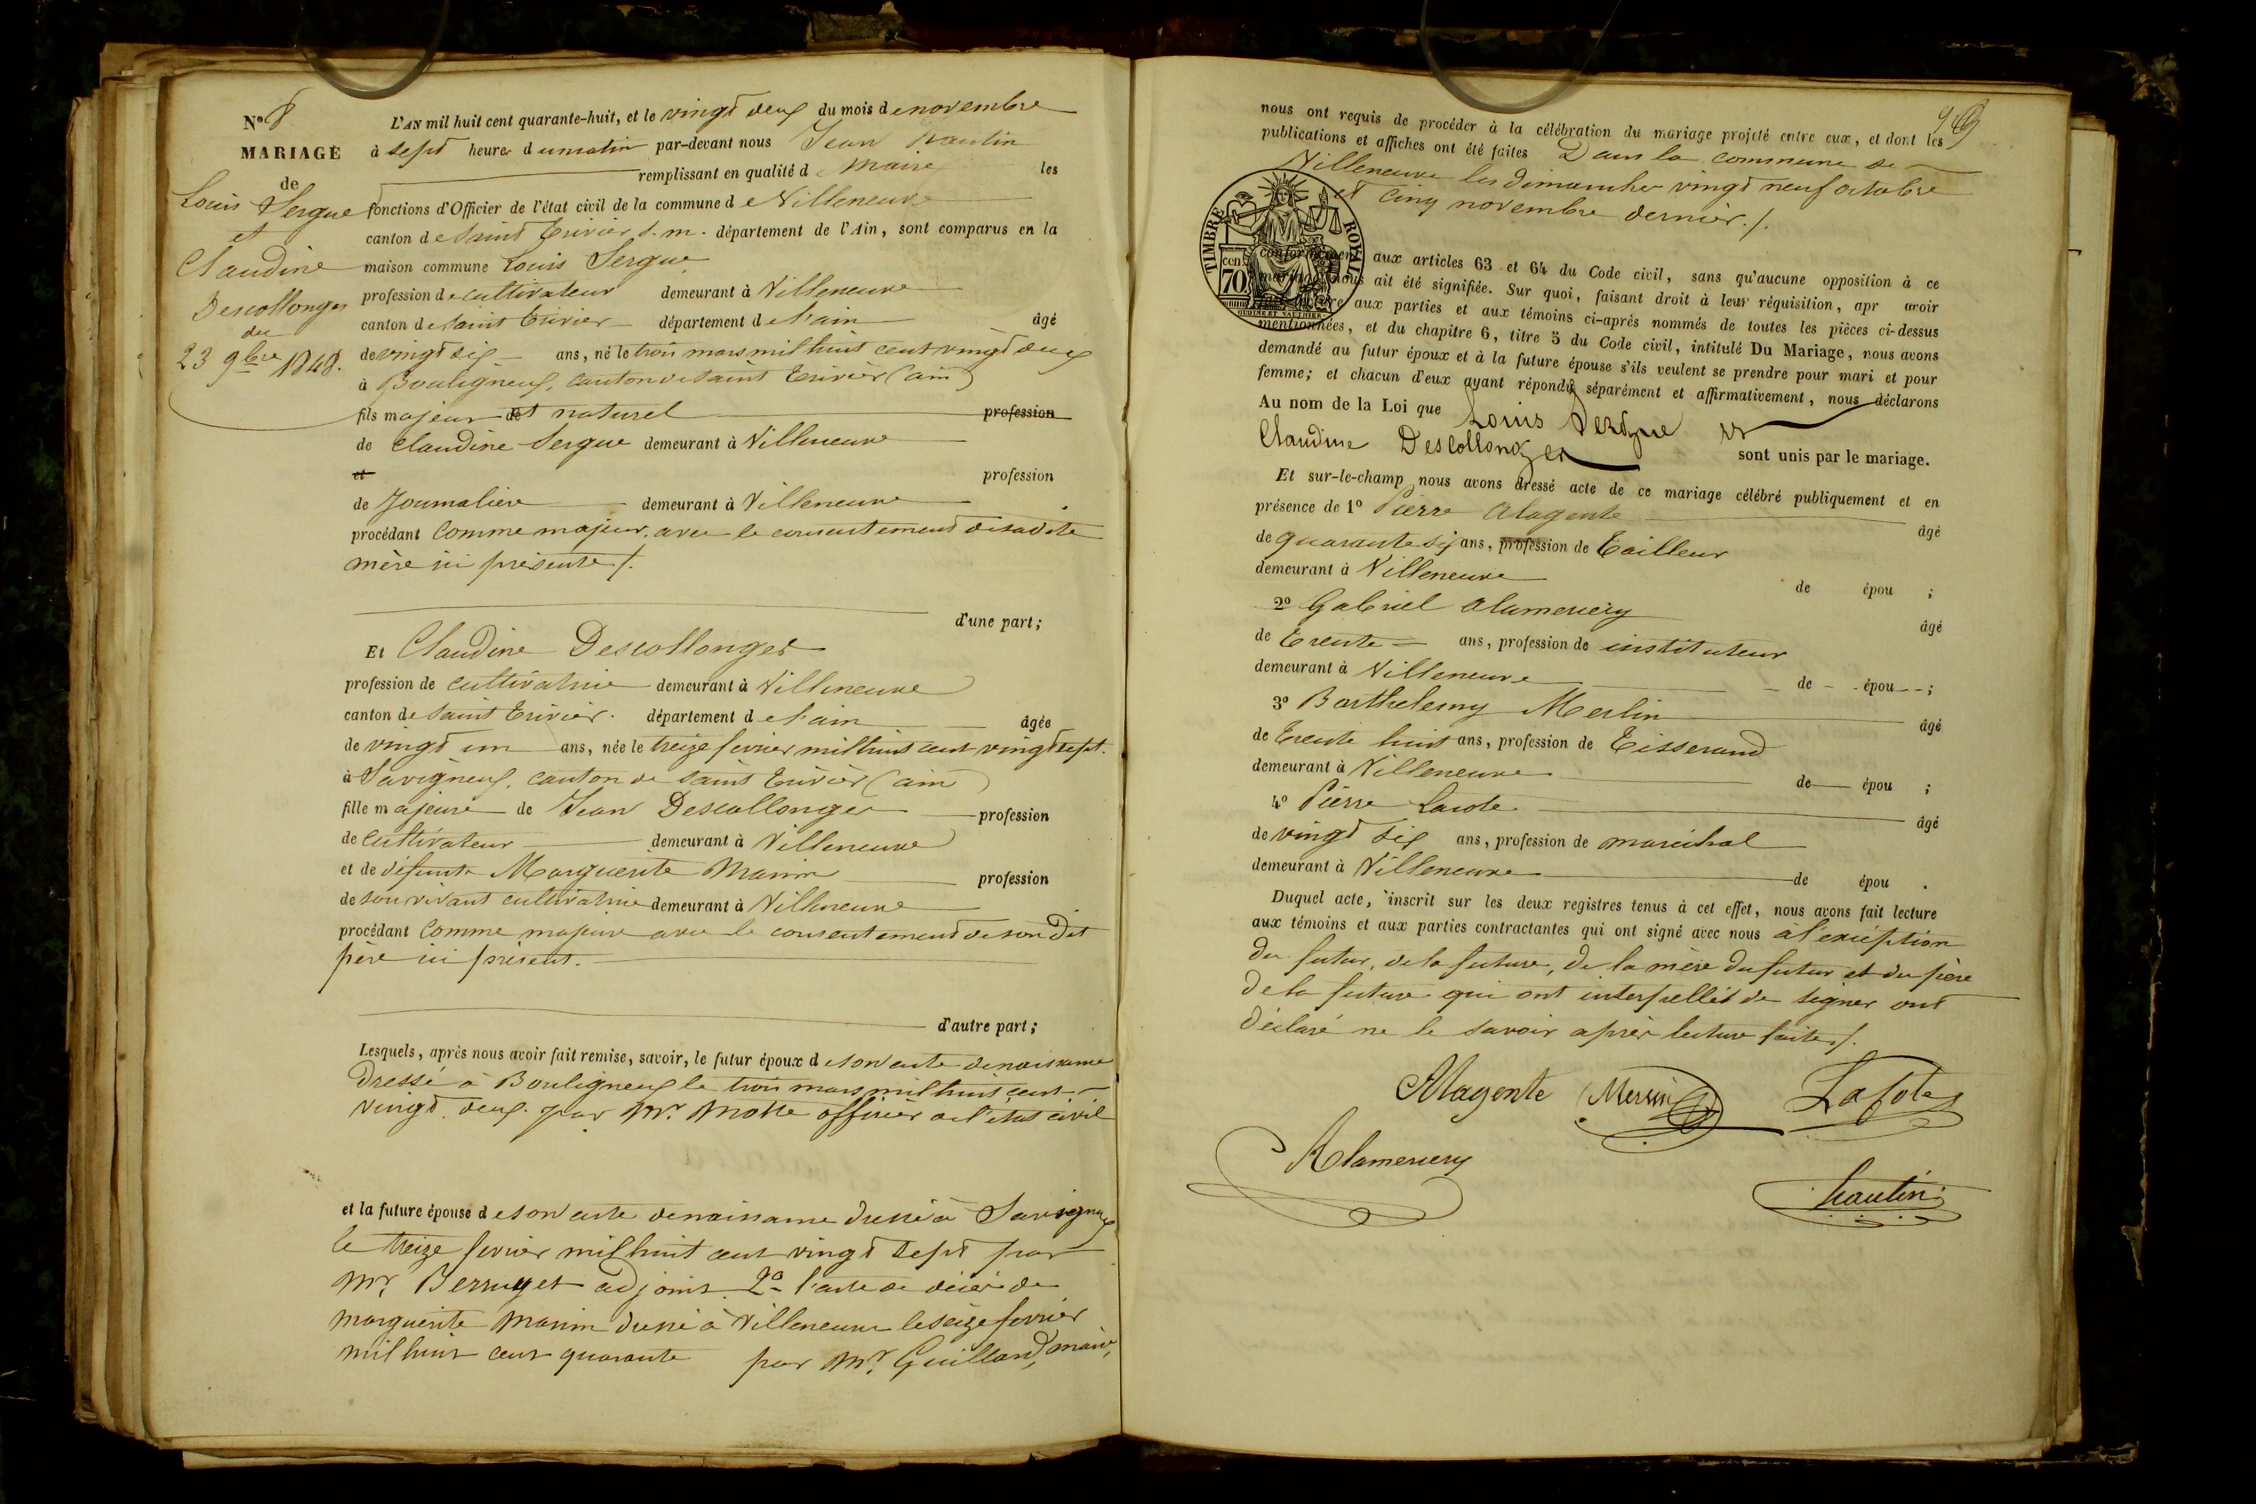 N° 8
MARIAGE
de
Louis Sergue
et
Claudine
Descollonges
du
23 9bre 1848.
L'AN mil huit cent quarante-huit, et le vingt deux du mois de novembre
à sept heures du matin par-devant nous Jean
remplissant en qualité de Maire les
fonctions d'Officier de l'état civil de la commune de Villeneuve
canton de Saint Trivier s. m. département de l'Ain, sont comparus en la
maison commune Louis Sergue
profession de cultivateur demeurant à Villeneuve
canton de saint trivier département de l'ain âgé
de vingt six ans, né le trois mars mil huit cent vingt deux
à Bouligneux, canton de saint trivier (ain)
fils majeur et naturel profession
de Claudine Sergue demeurant à Villeneuve
et profession
de Journalière demeurant à Villeneuve
procédant comme majeur, avec le consentement de sadite
mère ici présente /.
d'une part;
Et Claudine Descollonges
profession de cultivatrice demeurant à Villeneuve
canton de saint trivier. département de l'ain âgée
de vingt un ans, née le treize fevrier mil huit cent vingt sept.
à Savigneux, canton de saint trivier (ain)
fille majeure de Jean Descollonges profession
de cultivateur demeurant à Villeneuve
et de défunte Marguerite Manin profession
de son vivant cultivatrice demeurant à Villeneuve
procédant comme majeure avec le consentement de son dit
père ici présent.
d'autre part;
Lesquels, après nous avoir fait remise, savoir, le futur époux de son acte de naissance
Dressé à Bouligneux le trois mars mil huit cent
vingt deux. par Mr. Motte officier de l'état civil
et la future épouse de son acte de naissance dressé à Savigneux
le treize fevrier mil huit cent vingt sept par
Mr. Berruyet adjoint 2° l'acte de décès de
marguerite Manin dressé à Villeneuve le seize fevrier
mil huit cent quarante par Mr. Guillard, maire,
nous ont requis de procéder à la célébration du mariage projeté entre eux, et dont les
publications et affiches ont été faites Dans la commune de
Villeneuve les dimanches vingt neuf octobre
et cinq novembre dernier. /.
TIMBRE ROYAL
70 cen.
conformément aux articles 63 et 64 du Code civil, sans qu'aucune opposition à ce
mariage nous ait été signifiée. Sur quoi, faisant droit à leur réquisition, apr avoir
lecture aux parties et aux témoins ci-après nommés de toutes les pièces ci-dessus
mentionnées, et du chapitre 6, titre 5 du Code civil, intitulé Du Mariage, nous avons
demandé au futur époux et à la future épouse s'ils veulent se prendre pour mari et pour
femme; et chacun d'eux ayant répondu séparément et affirmativement, nous déclarons
Au nom de la Loi que Louis Sergue et
Claudine Descollonges sont unis par le mariage.
Et sur-le-champ nous avons dressé acte de ce mariage célébré publiquement et en
présence de 1° Pierre Alagente âgé
de quarante six ans, profession de Tailleur
demeurant à Villeneuve de épou ;
2° Gabriel Alamercery âgé
de trente ans, profession de instituteur
demeurant à Villeneuve de épou ;
3° Barthelemy Merlin âgé
de trente huit ans, profession de Tisserand
demeurant à Villeneuve de épou ;
4° Pierre Lacote âgé
de vingt six ans, profession de maréchal
demeurant à Villeneuve de épou .
Duquel acte, inscrit sur les deux registres tenus à cet effet, nous avons fait lecture
aux témoins et aux parties contractantes qui ont signé avec nous à l'exception
du futur, de la future, de la mère du futur et du père
de la future qui ont interpellés de signer ont
déclaré ne le savoir après lecture faite /.
Alagente Merlin Lacote
Alamercery